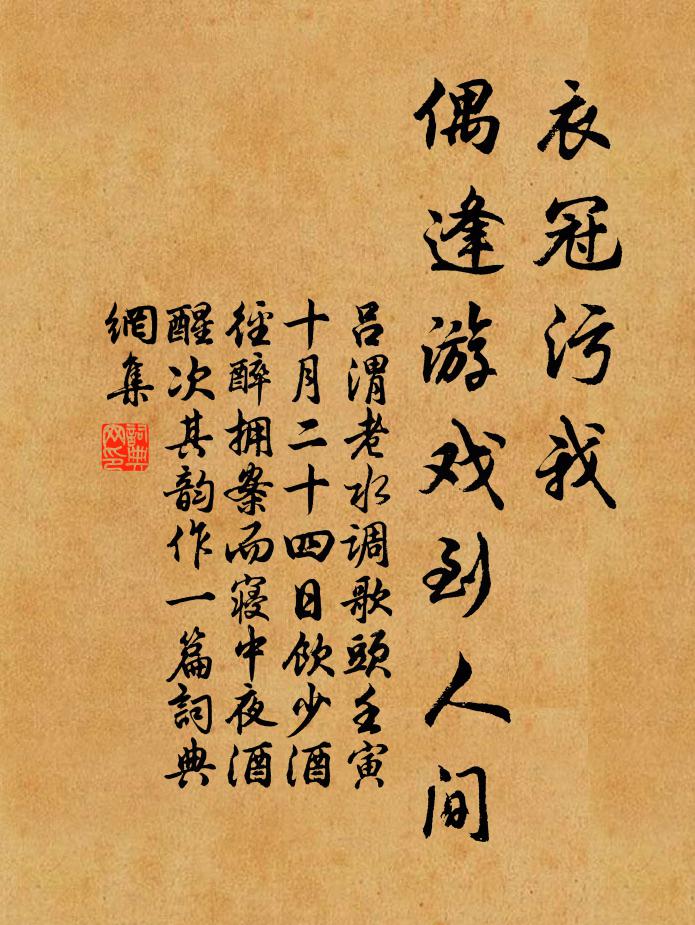 衣冠污我
偶逢游戏到人间
吕渭老水调歌頭壬寅
十月二十四日飲少酒
徑醉拥案而寝中夜酒
醒次其韵作一篇詞典
網集
詞典網印